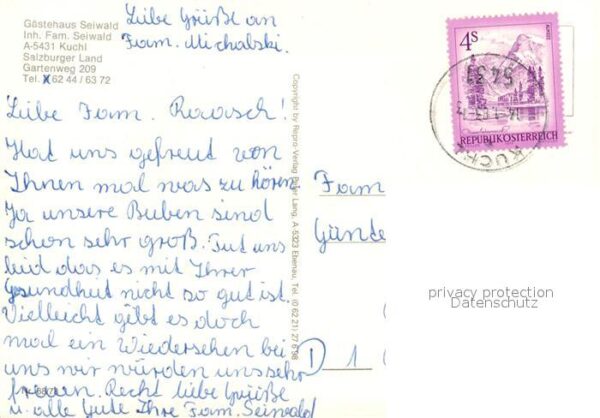 Gästehaus Seiwald
Inh. Fam. Seiwald
A-5431 Kuchl
Salzburger Land
Gartenweg 209
Tel. 62 44 / 63 72
Liebe Grüße an
Fam. Michalski.
Liebe Fam. Raasch!
Hat uns gefreut von
Ihnen mal was zu hören.
Ja unsere Buben sind
schon sehr groß. Tut uns
leid das es mit Ihrer
Gesundheit nicht so gut ist.
Vielleicht gibt es doch
mal ein Wiedersehen bei
uns wir würden uns sehr
freuen. Recht liebe Grüße
u. alle Gute Ihre Fam. Seiwald
Copyright by Repro-Verlag Lang, A 5323 Ebenau, Tel. (0 62 21) 27
Fam
Günte
D 1
4S
REPUBLIK ÖSTERREICH
5431
KUCHL
privacy protection
Datenschutz